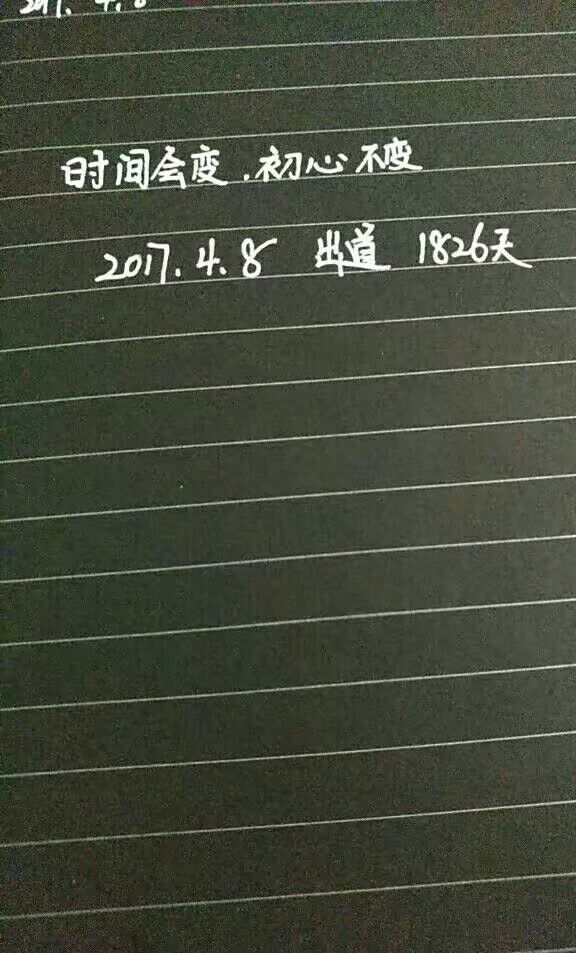 2017. 4. 8
时间会变.初心不变
2017.4.8 出道 1826天